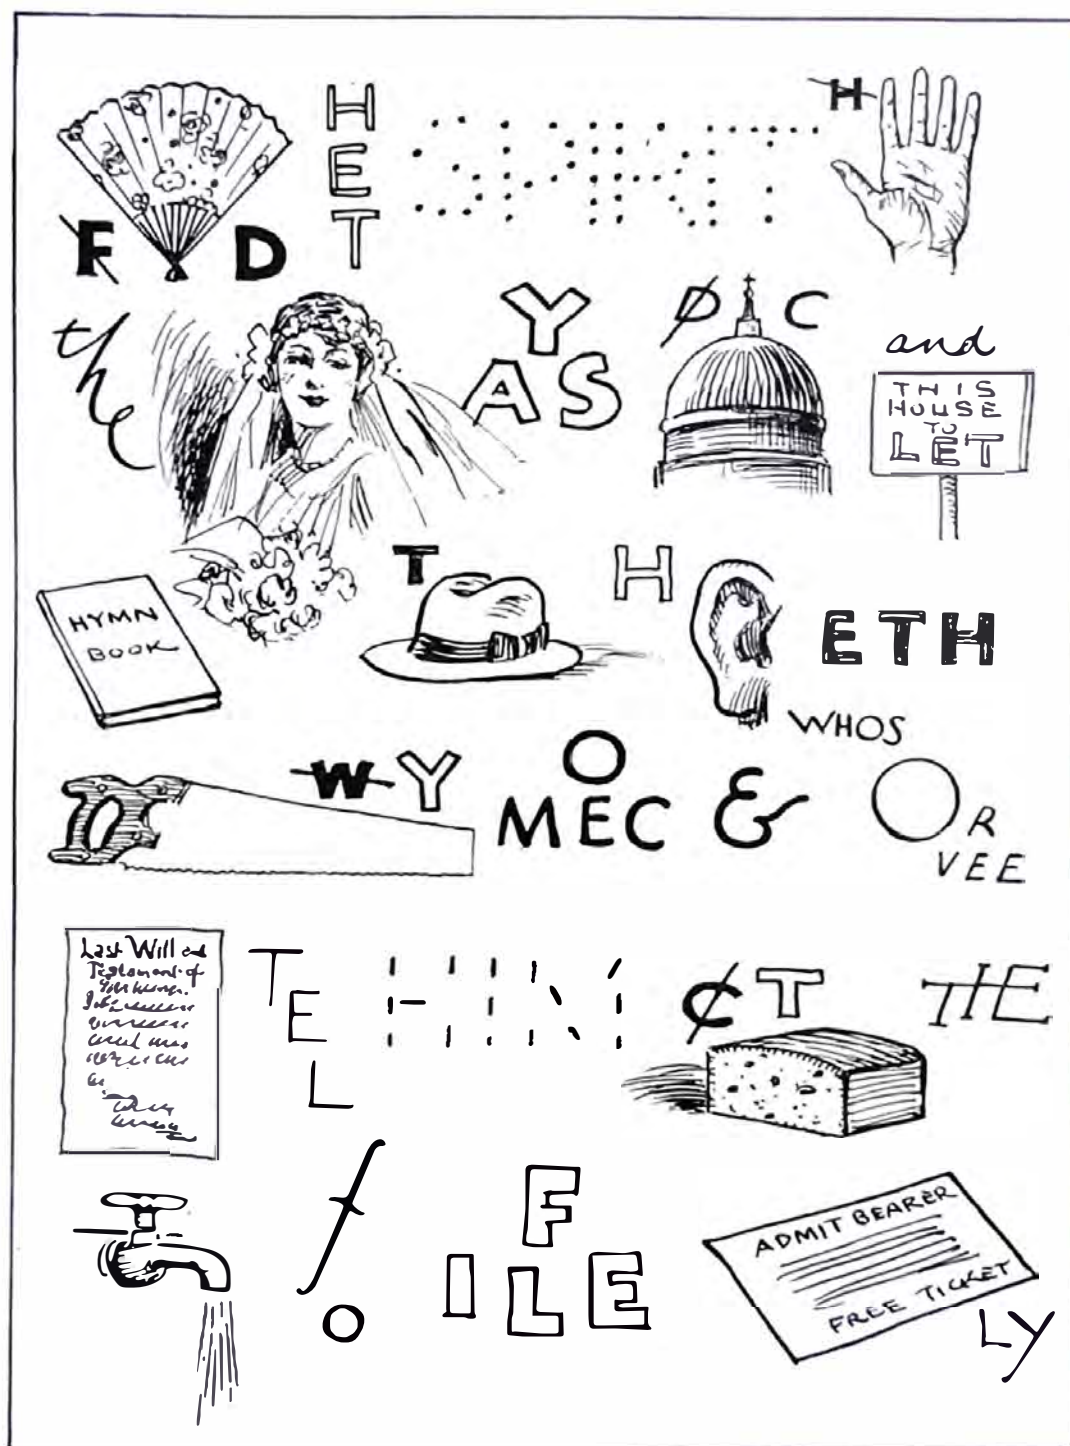 F D
H
E
T
SPIRIT
H
the
Y
A S
D C
and
THIS
HOUSE
TO
LET
HYMN
BOOK
T
H
ETH
WHOS
W Y
O
MEC
&
OR
VEE
Last Will and
Testament of
T
E
L
HIM
C T
THE
f
O
F
I L E
ADMIT BEARER
FREE TICKET
LY